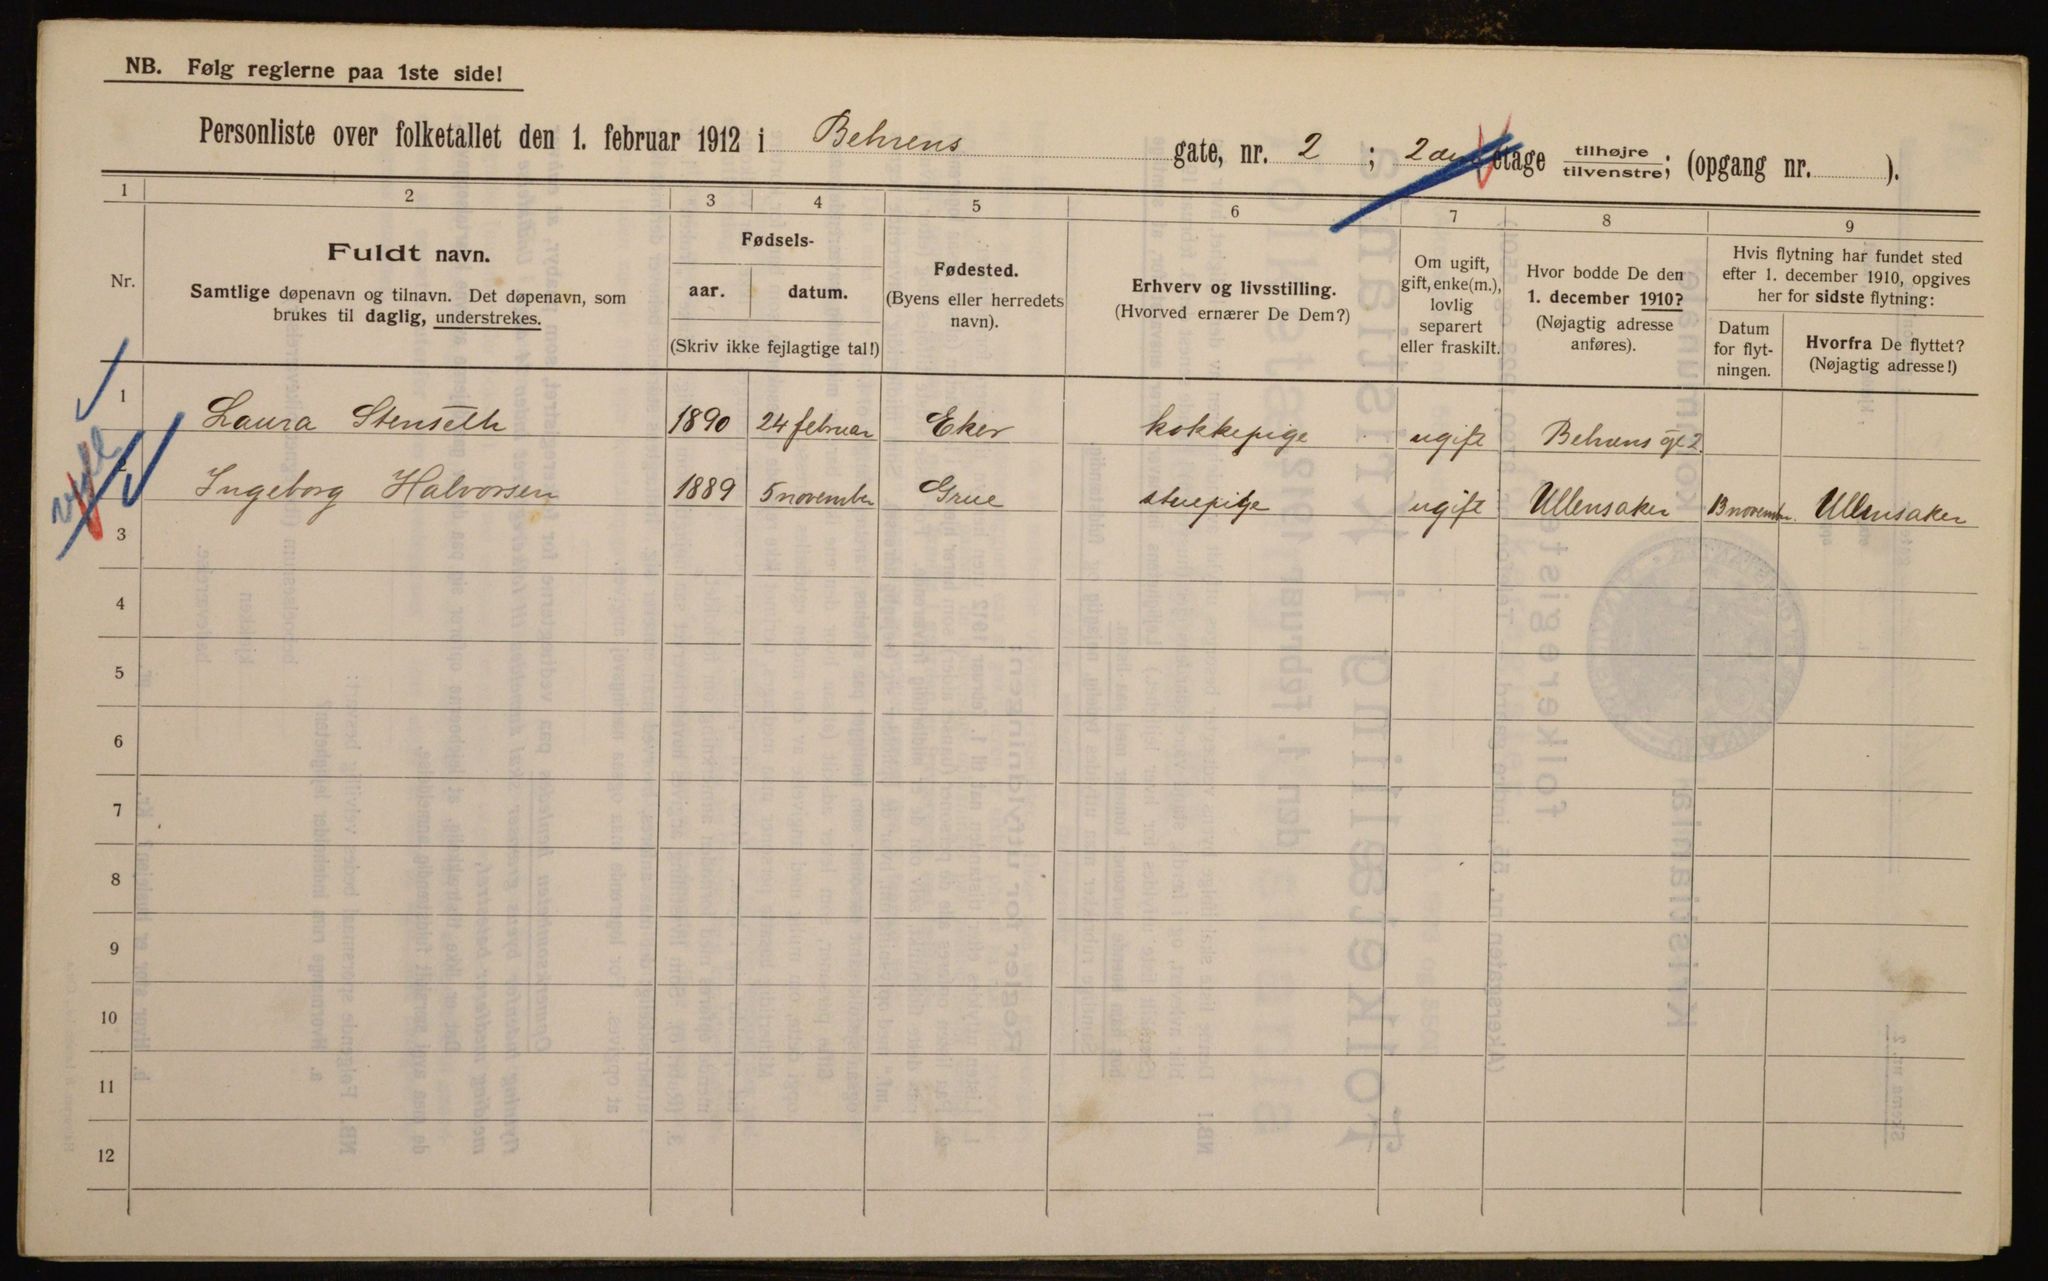 NB. Følg reglerne paa 1ste side!
Personliste over folketallet den 1. februar 1912 i Behrens gate, nr. 2 ; 2den etage tilhøjre/tilvenstre; (opgang nr. ).
1 2 3 4 5 6 7 8 9
Nr.
Fuldt navn.
Samtlige døpenavn og tilnavn. Det døpenavn, som
brukes til daglig, understrekes.
Fødsels-
aar. datum.
(Skriv ikke fejlagtige tal!)
Fødested.
(Byens eller herredets
navn).
Erhverv og livsstilling.
(Hvorved ernærer De Dem?)
Om ugift,
gift, enke(m.),
lovlig
separert
eller fraskilt.
Hvor bodde De den
1. december 1910?
(Nøjagtig adresse
anføres).
Hvis flytning har fundet sted
efter 1. december 1910, opgives
her for sidste flytning:
Datum
for flyt-
ningen.
Hvorfra De flyttet?
(Nøjagtig adresse!)
1 Laura Stenseth 1890 24 februar Eker kokkepige ugift Behrens gt 2.
2 Ingeborg Halvorsen 1889 5 november Grue stuepige ugift Ullensaker 13 novembr. Ullensaker
3
4
5
6
7
8
9
10
11
12